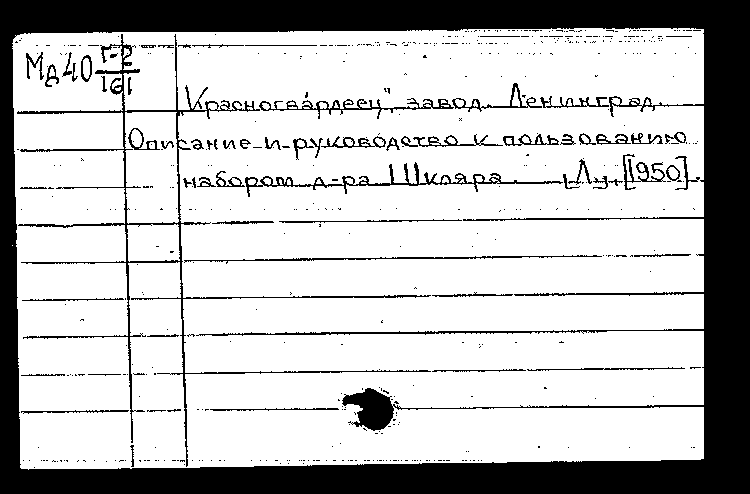 Мд40 Г-2/161
„Красногвардеец", завод. Ленинград.
Описание и руководство к пользованию
набором д-ра Шкляра. [Л.], [1950].